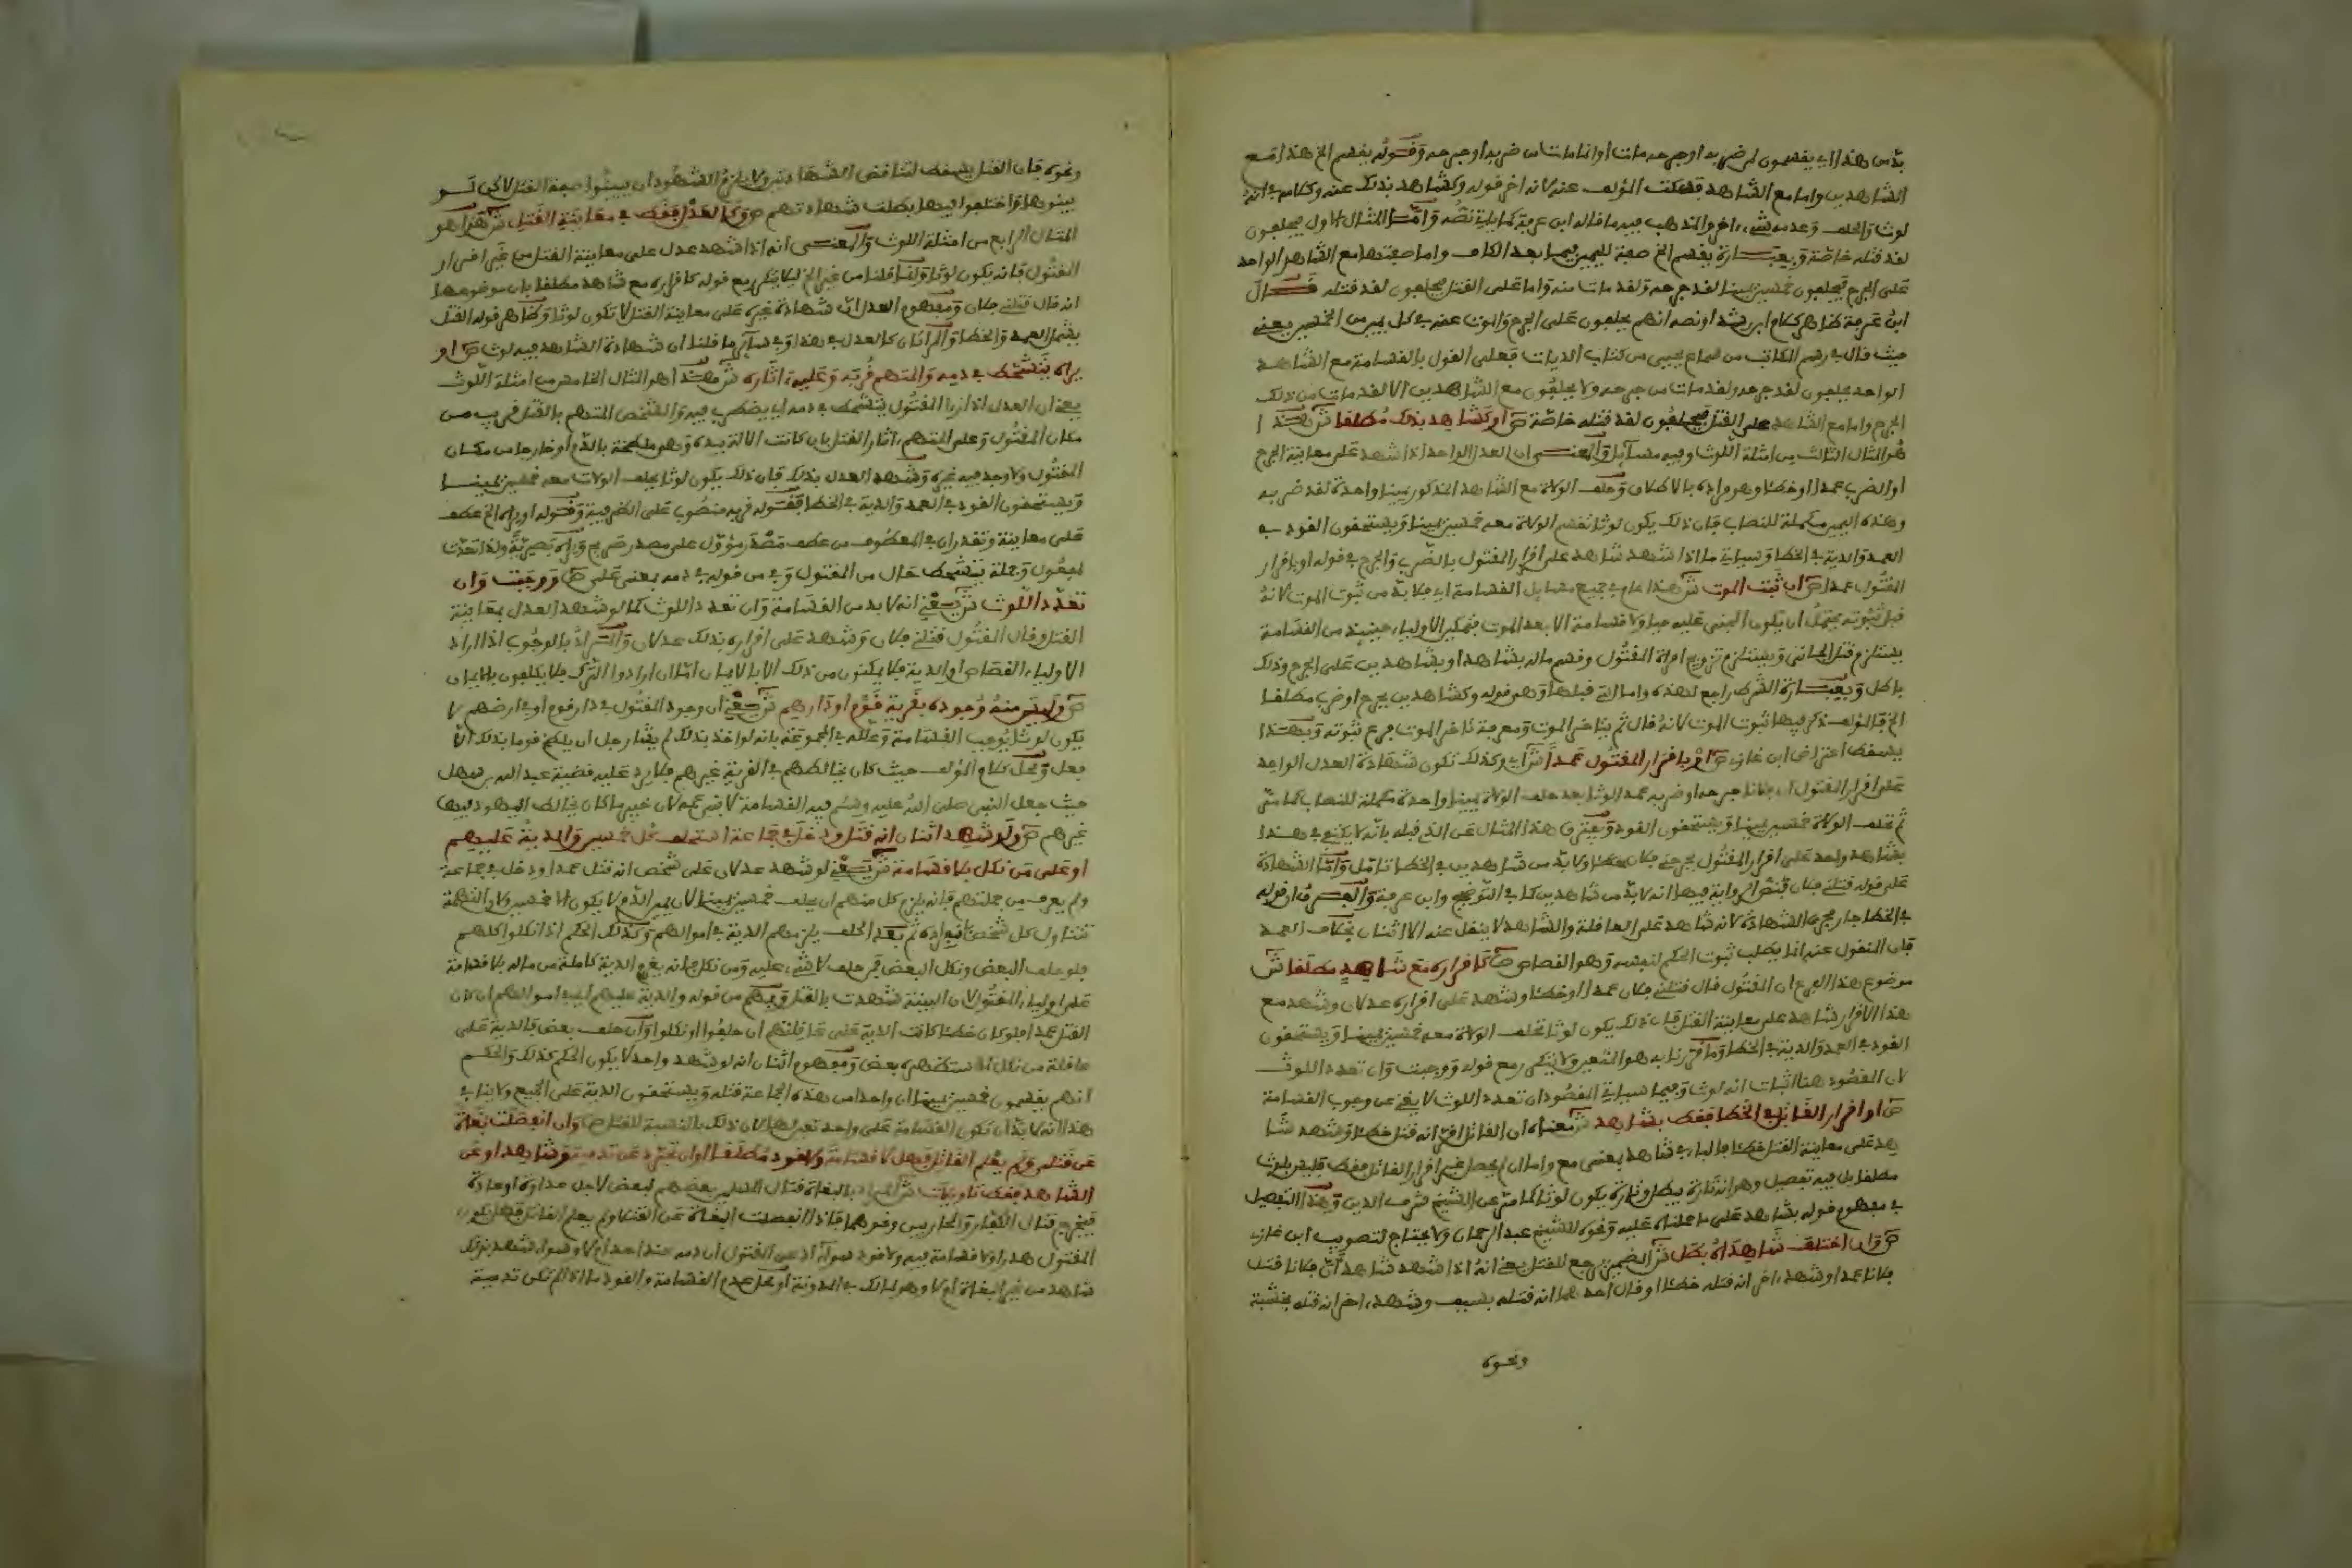 بد من هذا اي يقسمون لمن ضربه او جرحه مات او انما مات من ضربه او جرحه وقوله يقسم الخ هذا مع
الشاهدين واما مع الشاهد فسكت المؤلف عنه لانه اخر قوله وكشاهد بذلك عنه وكلامه في انه
لوث والحلف وعدمه شيء اخر والمذهب فيه ما قاله ابن عرفة كما ياتي نصه واما المثال الاول فيحلفون
لقد قتله خاصة وبعبارة يقسم الخ صفة لليمين فيما بعد الكاف واما صفتها مع الشاهد الواحد
على الجرح فيحلفون خمسين يمينا لقد جرحه ولقد مات منه واما على القتل فيحلفون لقد قتله قال
ابن عرفة ظاهر كلام ابن رشد او نصه انهم يحلفون على الجرح والموت عنه في كل يمين من الخمسين يعني
حيث قال في رسم المكاتب من سماع يحيى من كتاب الديات فعلى القول بالقسامة مع الشاهد
الواحد يحلفون لقد جرحه ولقد مات من جرحه ولا يحلفون مع الشاهدين الا لقد مات من ذلك
الجرح واما مع الشاهد على القتل فيحلفون لقد قتله خاصة ص او كشاهد بذلك مطلقا ش هذا
هو المثال الثالث من امثلة اللوث وفيه مسائل والمعنى ان العدل الواحد اذا شهد على معاينة الجرح
او الضرب عمدا او خطئا وهو مراده بالاطلاق وحلف الولاة مع الشاهد المذكور يمينا واحدة لقد ضربه
وهذه اليمين مكملة للنصاب فان ذلك يكون لوثا تقسم الولاة معه خمسين يمينا ويستحقون القود في
العمد والدية في الخطا وسياتي ما اذا شهد شاهد على اقرار المقتول بالضرب والجرح في قوله او باقرار
المقتول عمدا ص ان ثبت الموت ش هذا عام في جميع مسايل القسامة اي فلا بد من ثبوت الموت لانه
قبل ثبوته يحتمل ان يكون المجني عليه حيا ولا قسامة الا بعد الموت فتمكين الاولياء حينئذ من القسامة
يستلزم قتل الجاني ويستلزم تزويج امراة المقتول وقسم ماله بشاهد او بشاهدين على الجرح وذلك
باطل وبعبارة الشرط راجع لهذه واما التي قبلها وهو قوله وكشاهدين بجرح او ضرب مطلقا
الخ فالمؤلف ذكر فيها ثبوت الموت لانه قال ثم يتاخر الموت ومعرفة تاخر الموت فرع ثبوته وبهذا
يسقط اعتراض ابن غازي ص او باقرار المقتول عمدا ش اي وكذلك تكون شهادة العدل الواحد
على اقرار المقتول ان فلانا جرحه او ضربه عمدا لوثا بعد حلف الولاة يمينا واحدة مكملة للنصاب كما مر
ثم تحلف الولاة خمسين يمينا ويستحقون القود ويفترق هذا المثال عن الذي قبله بانه لا يكفي في هذا
بشاهد واحد على اقرار المقتول بجرحني فلان خطئا ولا بد من شاهدين في الخطا تامل واما الشهادة
على قوله قتلني فلان فنص الرواية فيها انه لا بد من شاهدين كما في التوضيح وابن عرفة والفرق ان قوله
في الخطا جار مجرى الشهادة لانه شاهد على العاقلة والشاهد لا ينقل عنه الا اثنان بخلاف العمد
فان المنقول عنه انما يطلب ثبوت الحكم لنفسه وهو القصاص ص كاقراره مع شاهد مطلقا ش
موضوع هذا الفرع ان المقتول قال قتلني فلان عمدا او خطئا وشهد على اقراره عدلان وشهد مع
هذا الاقرار شاهد على معاينة القتل فان ذلك يكون لوثا تحلف الولاة معه خمسين يمينا ويستحقون
القود في العمد والدية في الخطا وما قررنا به هو المتعين ولا يتكرر مع قوله ووجبت وان تعدد اللوث
لان المقصود هنا اثبات انه لوث وفيما سياتي المقصود ان تعدد اللوث لا يغني عن وجوب القسامة
ص او اقرار القاتل في الخطا فقط بشاهد ش معناه ان القاتل اقر انه قتل خطئا وشهد شا
هد على معاينة القتل خطئا فالباء في بشاهد بمعنى مع واما ان لم يحصل غير اقرار القاتل فقط فليس بلوث
مطلقا بل فيه تفصيل وهو انه تارة يبطل وتارة يكون لوثا كما مر عن الشيخ شرف الدين وهذا التفصيل
في مفهوم قوله بشاهد على ما حملناه عليه ونحوه للشيخ عبد الرحمان ولا يحتاج لتصويب ابن غازي
ص وان اختلف شاهداه بطل ش الضمير يرجع للقتل يعني انه اذا شهد شاهد ان فلانا قتل
فلانا عمدا وشهد اخر انه قتله خطئا او قال احدهما انه قتله بسيف وشهد اخر انه قتله بخشبة
ونحوه
ونحوه فان القتل يسقط لتناقض الشهادتين ولا يلزم الشهود ان يبينوا صفة القتل لاكن لو
بينوها واختلفوا فيها بطلت شهادتهم ص وكالعدل فقط في معاينة القتل ش هذا هو
المثال الرابع من امثلة اللوث والمعنى انه اذا شهد عدل على معاينة القتل من غير اقرار
المقتول فانه يكون لوثا وانما قلنا من غير الخ ليلا يتكرر مع قوله كاقراره مع شاهد مطلقا بان موضوعها
انه قال قتلني فلان ومفهوم العدل ان شهادة غيره على معاينة القتل لا تكون لوثا وظاهر قوله القتل
يشمل العمد والخطا والمراتان كالعدل في هذا وفي سائر ما قلنا ان شهادة الشاهد فيه لوث ص او
يراه يتشحط في دمه والمتهم قربه وعليه اثاره ش هذا هو المثال الخامس من امثلة اللوث
يعني ان العدل اذا راى المقتول يتشحط في دمه اي يضطرب فيه والشخص المتهم بالقتل قريب من
مكان المقتول وعلى المتهم اثار القتل بان كانت الالة بيده وهي ملطخة بالدم او خارجا من مكان
المقتول ولا يوجد فيه غيره وشهد العدل بذلك فان ذلك يكون لوثا يحلف الولات معه خمسين يمينا
ويستحقون القود في العمد والدية في الخطا فقوله قربه منصوب على الظرفية وقوله او يراه الخ عطف
على معاينة وتقدر ان في المعطوف من عطف مصدر مؤول على مصدر صريح ويراه بصرية ولذا تعدت
لمفعول وجملة يتشحط حال من المقتول وفي من قوله في دمه بمعنى على ص ووجبت وان
تعدد اللوث ش يعني انه لا بد من القسامة وان تعدد اللوث كما لو شهد العدل بمعاينة
القتل وقال المقتول قتلني فلان وشهد على اقراره بذلك عدلان والمراد بالوجوب اذا اراد
الاولياء القصاص او الدية فلا يمكنون من ذلك الا بالايمان اما ان ارادوا الترك فلا يكلفون بالايمان
ص وليس منه وجوده بقرية قوم او دارهم ش يعني ان وجود المقتول في دار قوم او في ارضهم لا
يكون لوثا يوجب القسامة وعلله في المجموعة بانه لو اخذ بذلك لم يشا رجل ان يلطخ قوما بذلك الا
فعل ومحل كلام المؤلف حيث كان يخالطهم في القرية غيرهم فلا يرد عليه قضية عبد الله بن سهل
حيث جعل النبي صلى الله عليه وسلم فيه القسامة لابني عمه لان خيبر ما كان يخالط اليهود فيها
غيرهم ص ولو شهد اثنان انه قتل ودخل في جماعة استحلف كل خمسين والدية عليهم
او على من نكل بلا قسامة ش يعني لو شهد عدلان على شخص انه قتل عمدا ودخل في جماعة
ولم يعرف من جملتهم فانه يلزم كل منهم ان يحلف خمسين يمينا لان يمين الدم لا يكون الا خمسين ولان التهمة
تتناول كل شخص بمفرده ثم بعد الحلف يلزمهم الدية في اموالهم وكذلك الحكم اذا نكلوا كلهم
فلو حلف البعض ونكل البعض فمن حلف لا شيء عليه ومن نكل فانه يغرم الدية كاملة من ماله بلا قسامة
على اولياء المقتول لان البينة شهدت بالقتل ويفهم من قوله والدية عليهم اي في اموالهم ان كان
القتل عمدا فلو كان خطئا كانت الدية على عاقلتهم ان حلفوا او نكلوا وان حلف بعض فالدية على
عاقلة من نكل استظهره بعض ومفهوم اثنان انه لو شهد واحد لا يكون الحكم كذلك والحكم
انهم يقسمون خمسين يمينا ان واحدا من هذه الجماعة قتله ويستحقون الدية على الجميع ولا ينافي
هذا انه لا بد ان تكون القسامة على واحد تعين لها لان ذلك بالنسبة للقتل ص وان انفصلت بغاة
عن قتلى ولم يعلم القاتل فهل لا قسامة ولا قود مطلقا او ان تجرد عن تدمية وشاهد او عن
الشاهد فقط تاويلات ش المراد بالبغاة قتال المسلمين بعضهم لبعض لاجل عداوة او غارة
فيخرج قتال الكفار والمحاربين ونحوهما فاذا انفصلت البغاة عن القتلى ولم يعلم القاتل فهل يكون
المقتول هدرا ولا قسامة فيه ولا قود سواء ادعى المقتول ان دمه عند احد ام لا وسواء شهد بذلك
شاهد من غير البغاة ام لا وهو لمالك في المدونة او محل عدم القسامة والقود ما اذا لم تكن تدمية